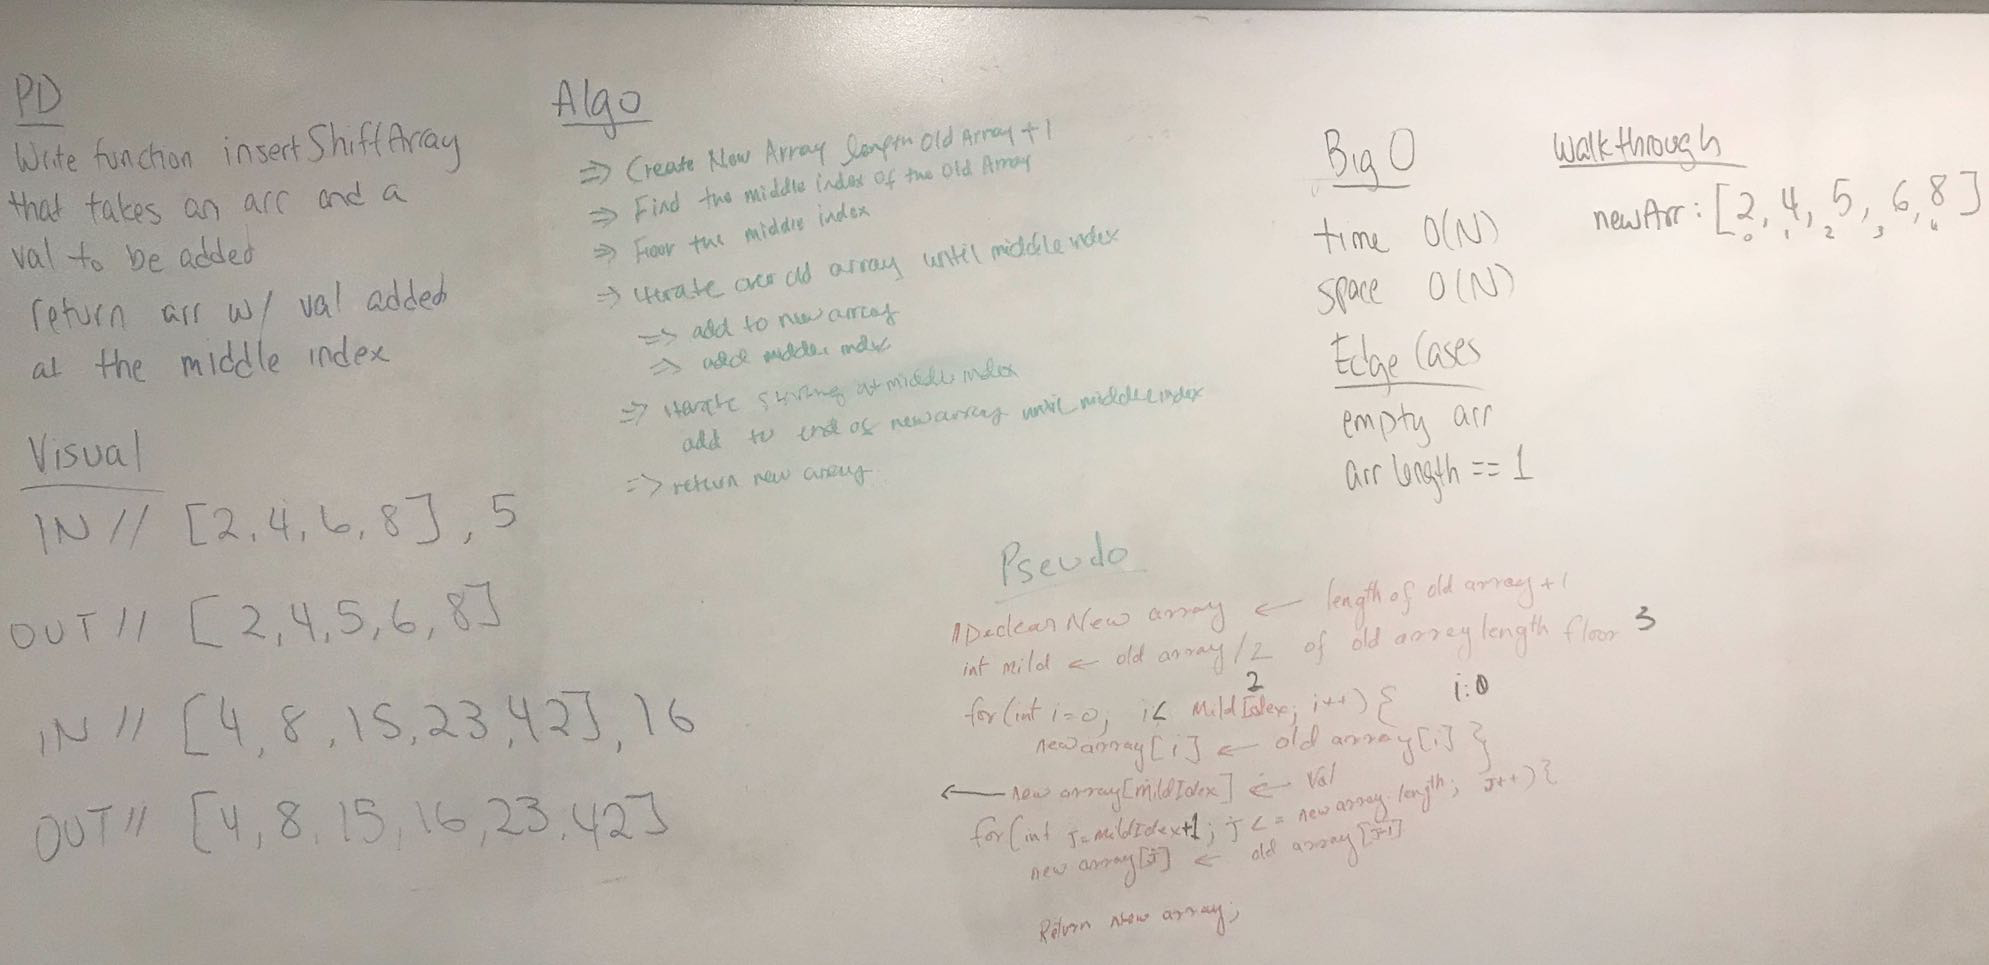 PD
Write function insertShiftArray
that takes an arr and a
val to be added
return arr w/ val added
at the middle index
Visual
IN// [2,4,6,8], 5
OUT// [2,4,5,6,8]
IN// [4,8,15,23,42], 16
OUT// [4,8,15,16,23,42]
Algo
=> Create New Array length Old Array +1
=> Find the middle index of the Old Array
=> Floor the middle index
=> iterate over old array until middle index
=> add to new array
=> add middle index
=> iterate starting at middle index
add to end of new array until middle index
=> return new array
Big O
time O(N)
space O(N)
Edge Cases
empty arr
arr length == 1
Walkthrough
newArr: [2, 4, 5, 6, 8]
0 1 2 3 4
Pseudo
Declear New array ← length of old array +1
int mild ← old array /2 of old array length floor 3
2
for (int i=0; i< MildIdex; i++) { i:0
new array [i] ← old array [i] }
← new array [MildIdex] ← Val
for (int J=mildIdex+1; J <= new array length; J++) {
new array [J] ← old array [J-1]
Return New array;